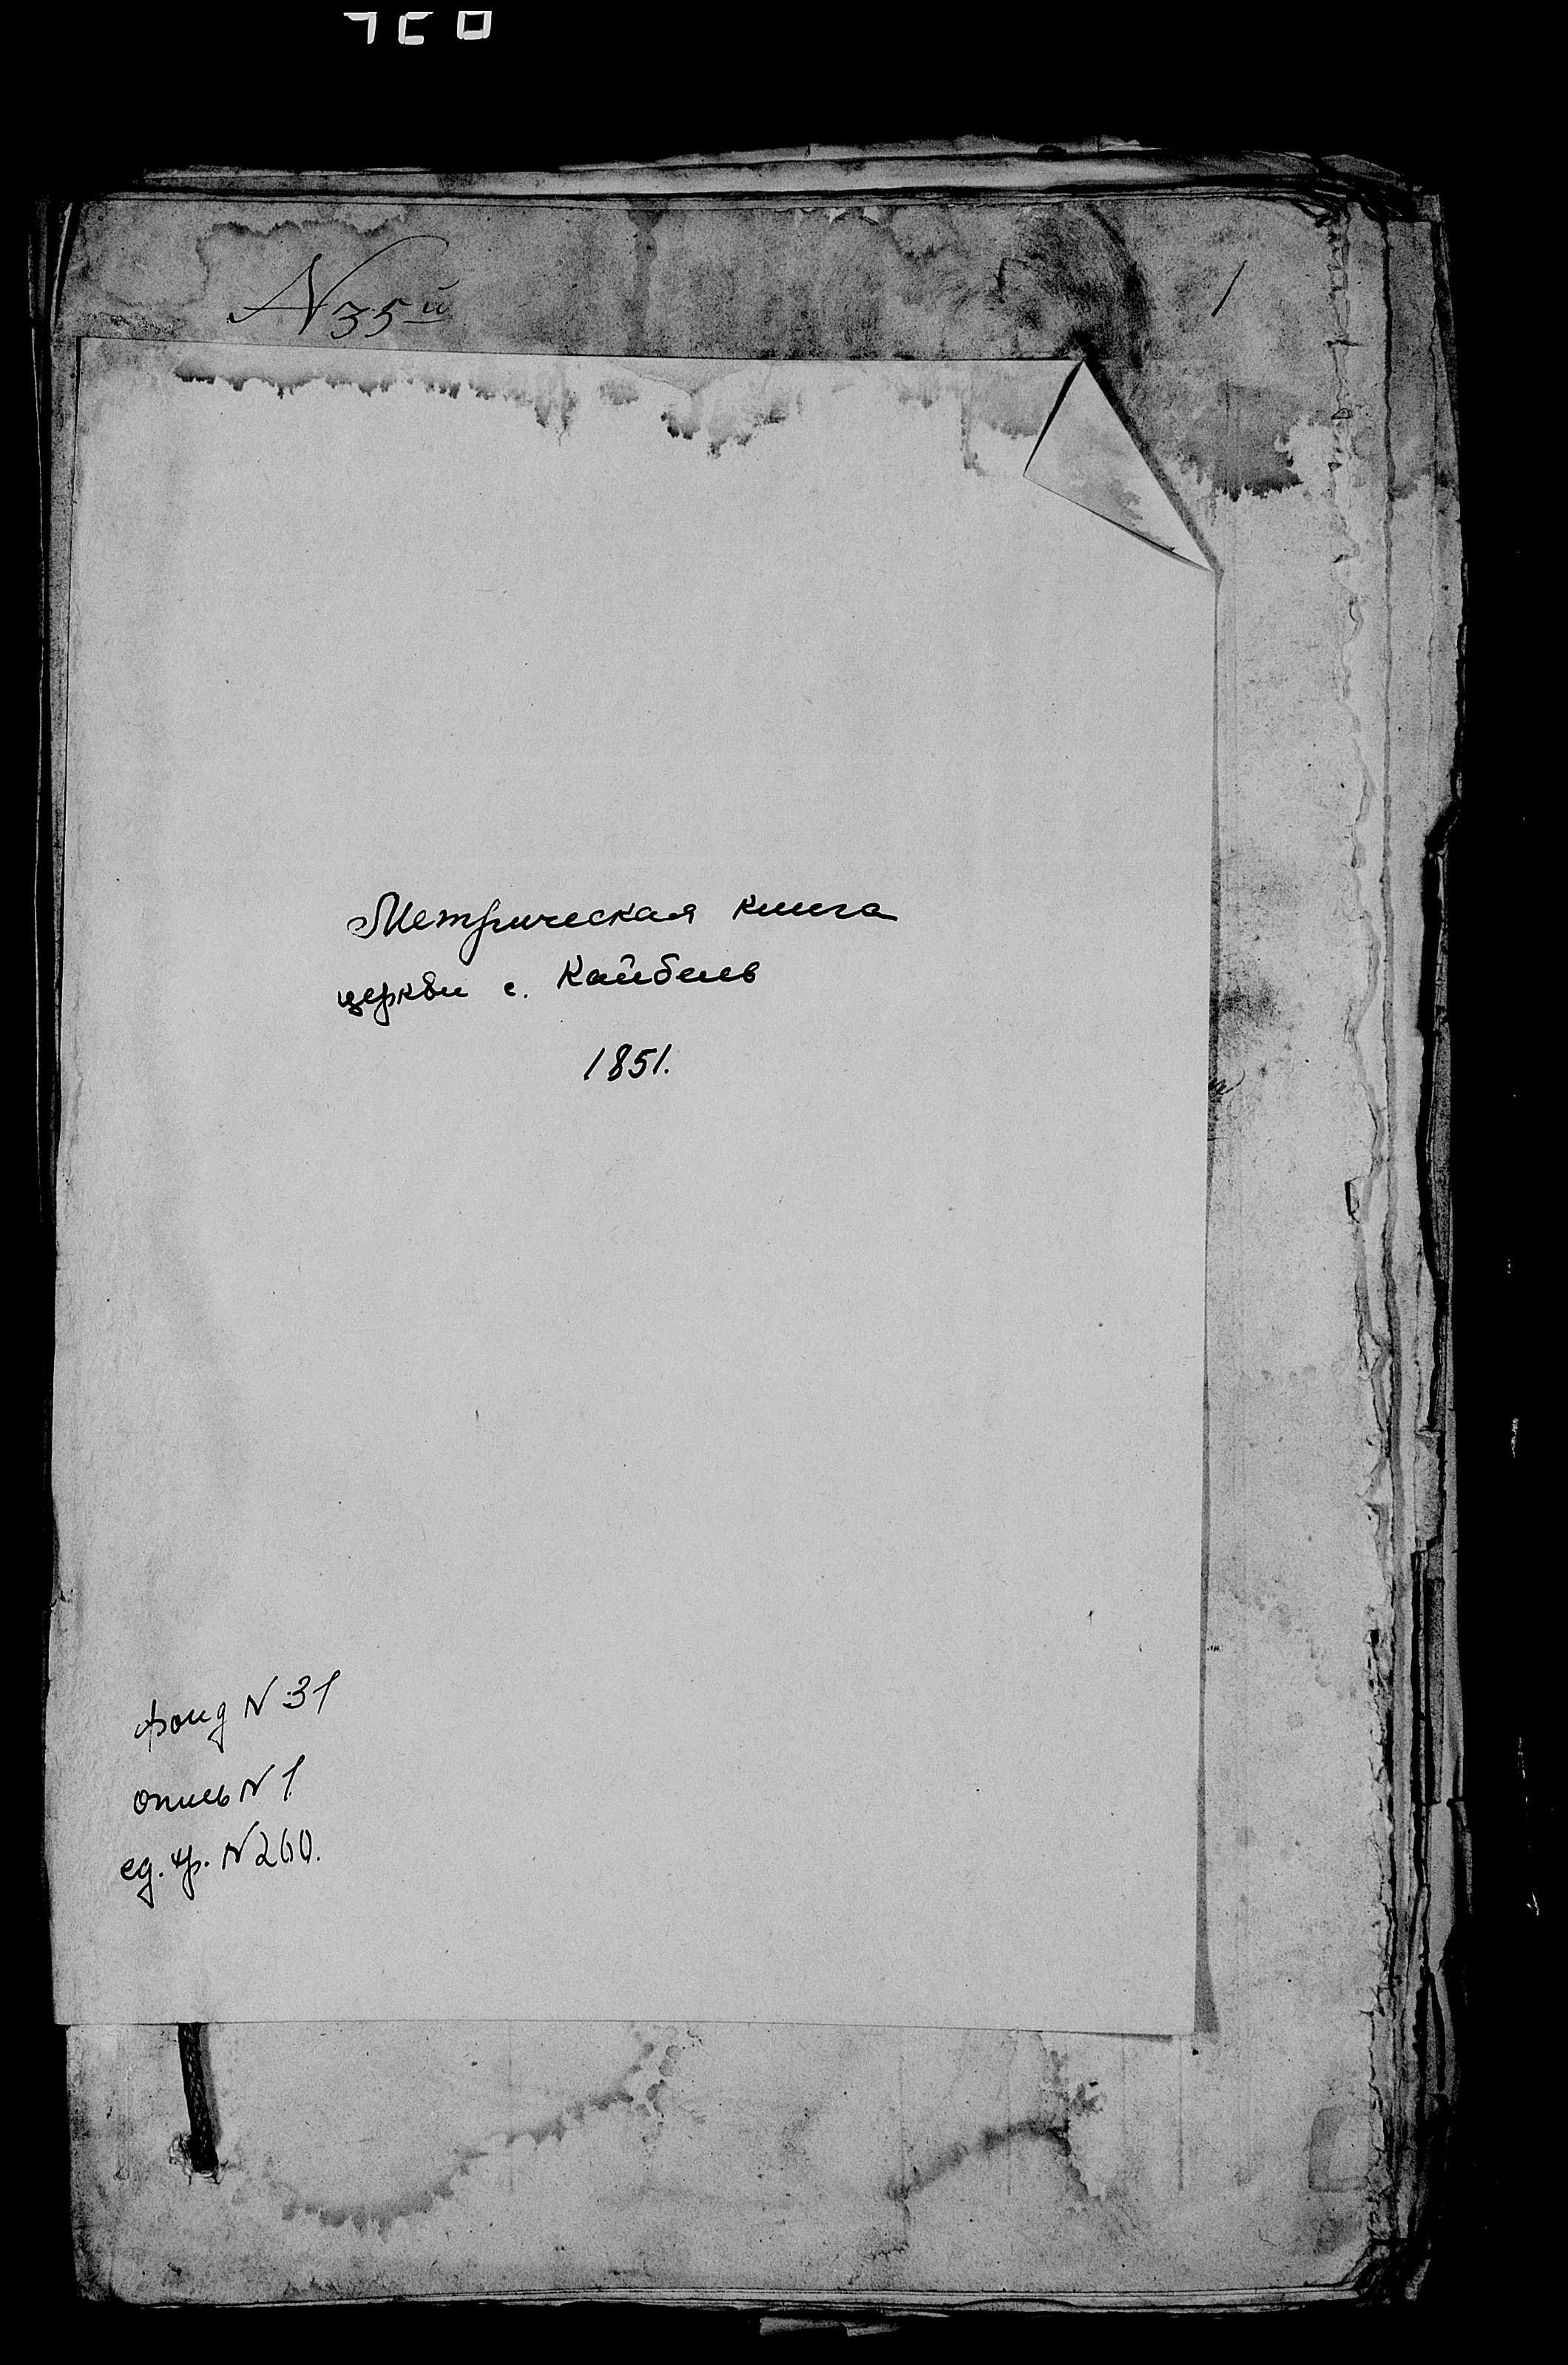 N 35й
1
Метрическая книга
церкви с. Кайбелы
1851.
фонд N 31
опись N 1
ед. хр. N 260.